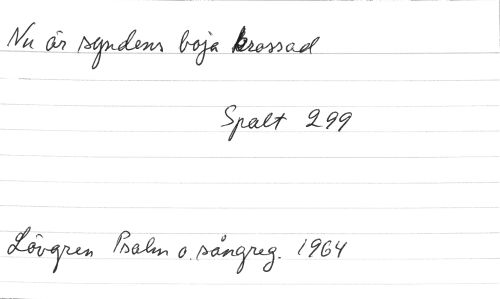 Nu är syndens boja krossad
Spalt 299
Lövgren Psalm o. sångreg. 1964